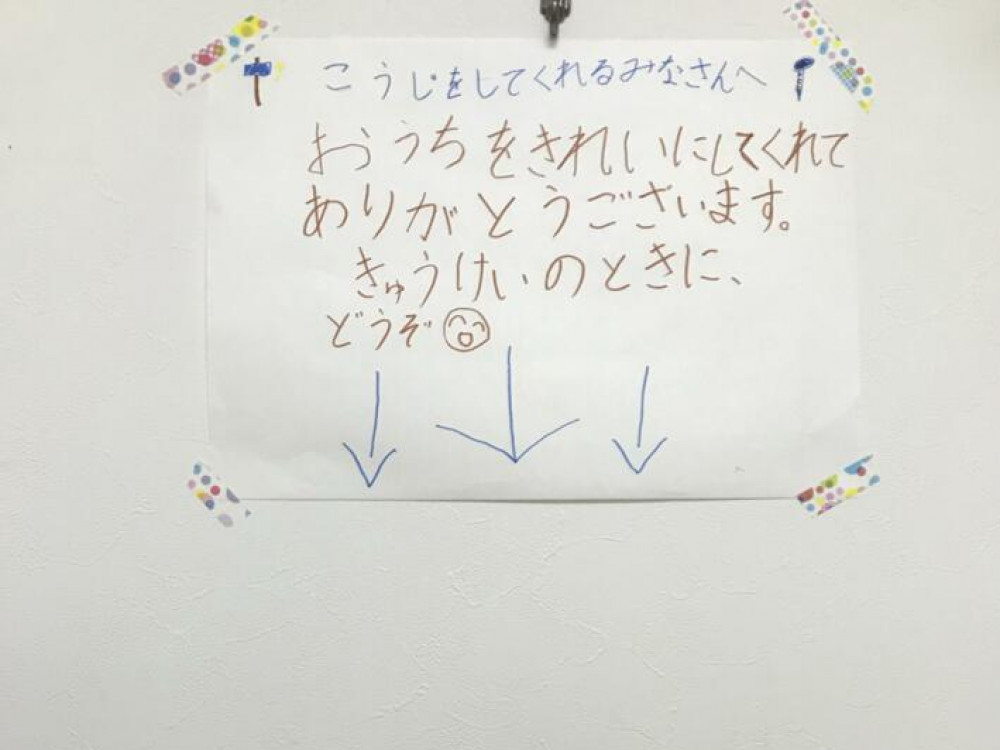 こうじをしてくれるみなさんへ
おうちをきれいにしてくれて
ありがとうございます。
きゅうけいのときに、
どうぞ